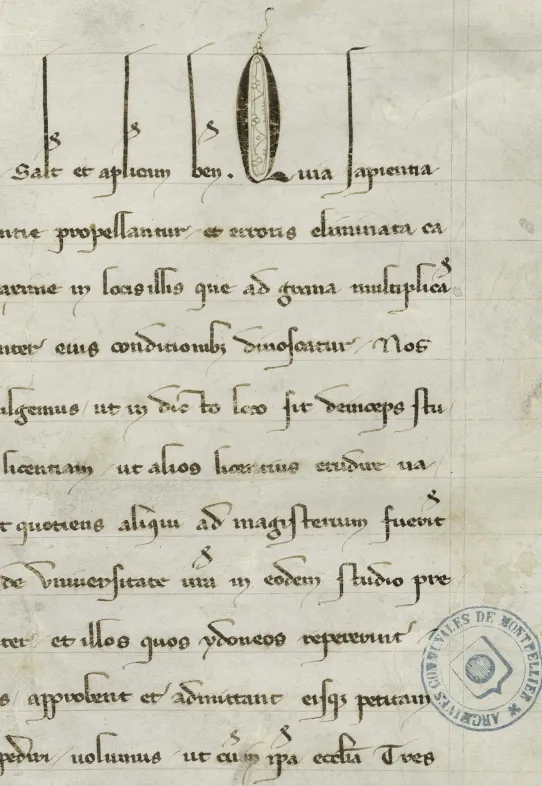 Salt et aplicam ben. Quia sapientia
ntie propellantur et erroris eliminata ca
in locis illis que ad grana multiplica
nter eius conditionibz dinoscatur Nos
ulgemus ut in dicto loco sit deinceps stu
licentiam ut alios licentius erudire ua
t quotiens aliqui ad magisterium fuerit
de vniuersitate ura in eodem studio pre
ter et illos quos ydoneos repererint
s approbent et admittant eisqz petitam
uolumus ut cum ipa ecclia Tres
ARCHIVES COMMUNALES DE MONTPELLIER